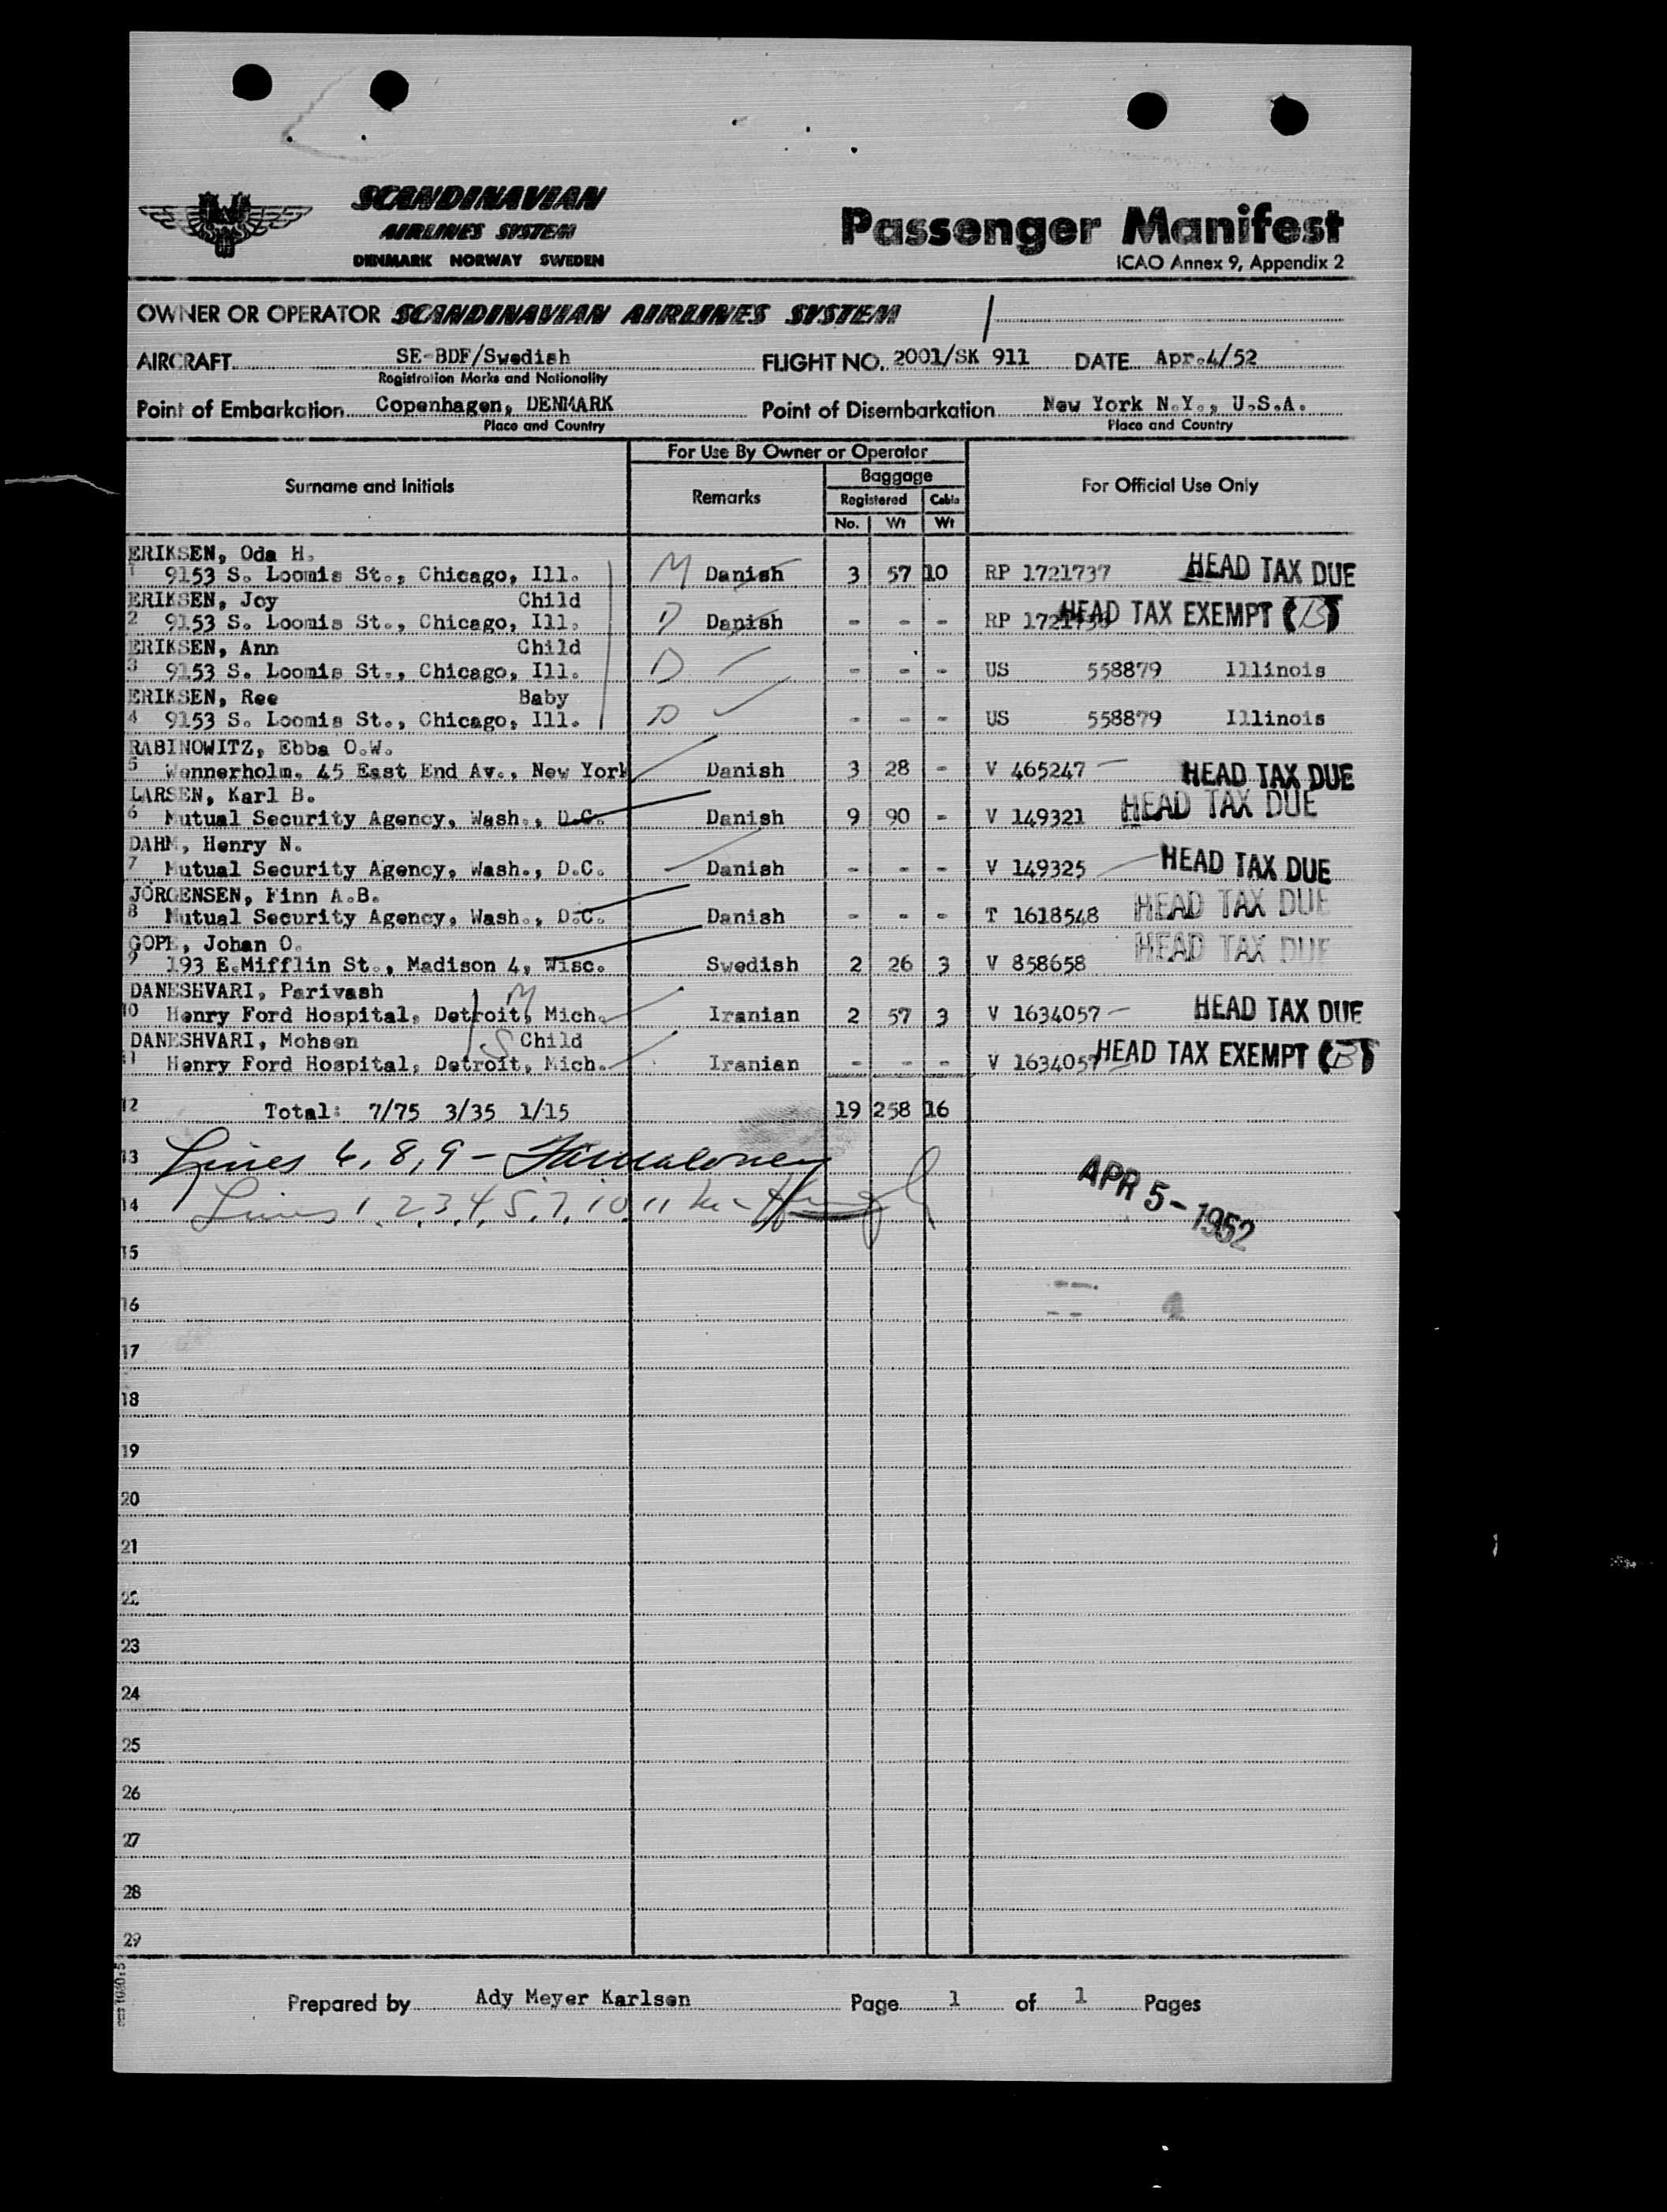 SCANDINAVIAN
AIRLINES SYSTEM
DENMARK NORWAY SWEDEN
Passenger Manifest
ICAO Annex 9, Appendix 2
OWNER OR OPERATOR SCANDINAVIAN AIRLINES SYSTEM
AIRCRAFT SE-BDF/Swedish FLIGHT NO. 2001/SK 911 DATE Apr.4/52
Registration Marks and Nationality
Point of Embarkation Copenhagen, DENMARK Point of Disembarkation New York N.Y., U.S.A.
Place and Country Place and Country
For Use By Owner or Operator
Surname and Initials Remarks Baggage For Official Use Only
Registered Cabin
No. Wt Wt
ERIKSEN, Oda H.
1 9153 S. Loomis St., Chicago, Ill. M Danish 3 57 10 RP 1721737 HEAD TAX DUE
ERIKSEN, Joy Child
2 9153 S. Loomis St., Chicago, Ill. D Danish - - - RP HEAD TAX EXEMPT (B)
ERIKSEN, Ann Child
3 9153 S. Loomis St., Chicago, Ill. D - - - US 558879 Illinois
ERIKSEN, Ree Baby
4 9153 S. Loomis St., Chicago, Ill. D - - - US 558879 Illinois
RABINOWITZ, Ebba O.W.
5 Wennerholm, 45 East End Av., New York Danish 3 28 - V 465247 HEAD TAX DUE
LARSEN, Karl B.
6 Mutual Security Agency, Wash., D.C. Danish 9 90 - V 149321 HEAD TAX DUE
DAHM, Henry N.
7 Mutual Security Agency, Wash., D.C. Danish - - - V 149325 HEAD TAX DUE
JÖRGENSEN, Finn A.B.
8 Mutual Security Agency, Wash., D.C. Danish - - - T 1618548 HEAD TAX DUE
GOPE, Johan O.
9 193 E.Mifflin St., Madison 4, Wisc. Swedish 2 26 3 V 858658 HEAD TAX DUE
DANESHVARI, Parivash M
10 Henry Ford Hospital, Detroit, Mich. Iranian 2 57 3 V 1634057 HEAD TAX DUE
DANESHVARI, Mohsen S Child
11 Henry Ford Hospital, Detroit, Mich. Iranian - - - V 1634057 HEAD TAX EXEMPT (B)
12 Total: 7/75 3/35 1/15 19 258 16
13 Lines 6, 8, 9 -
14 Lines 1, 2, 3, 4, 5, 7, 10, 11
APR 5 - 1952
15
16
17
18
19
20
21
22
23
24
25
26
27
28
29
Prepared by Ady Meyer Karlsen Page 1 of 1 Pages